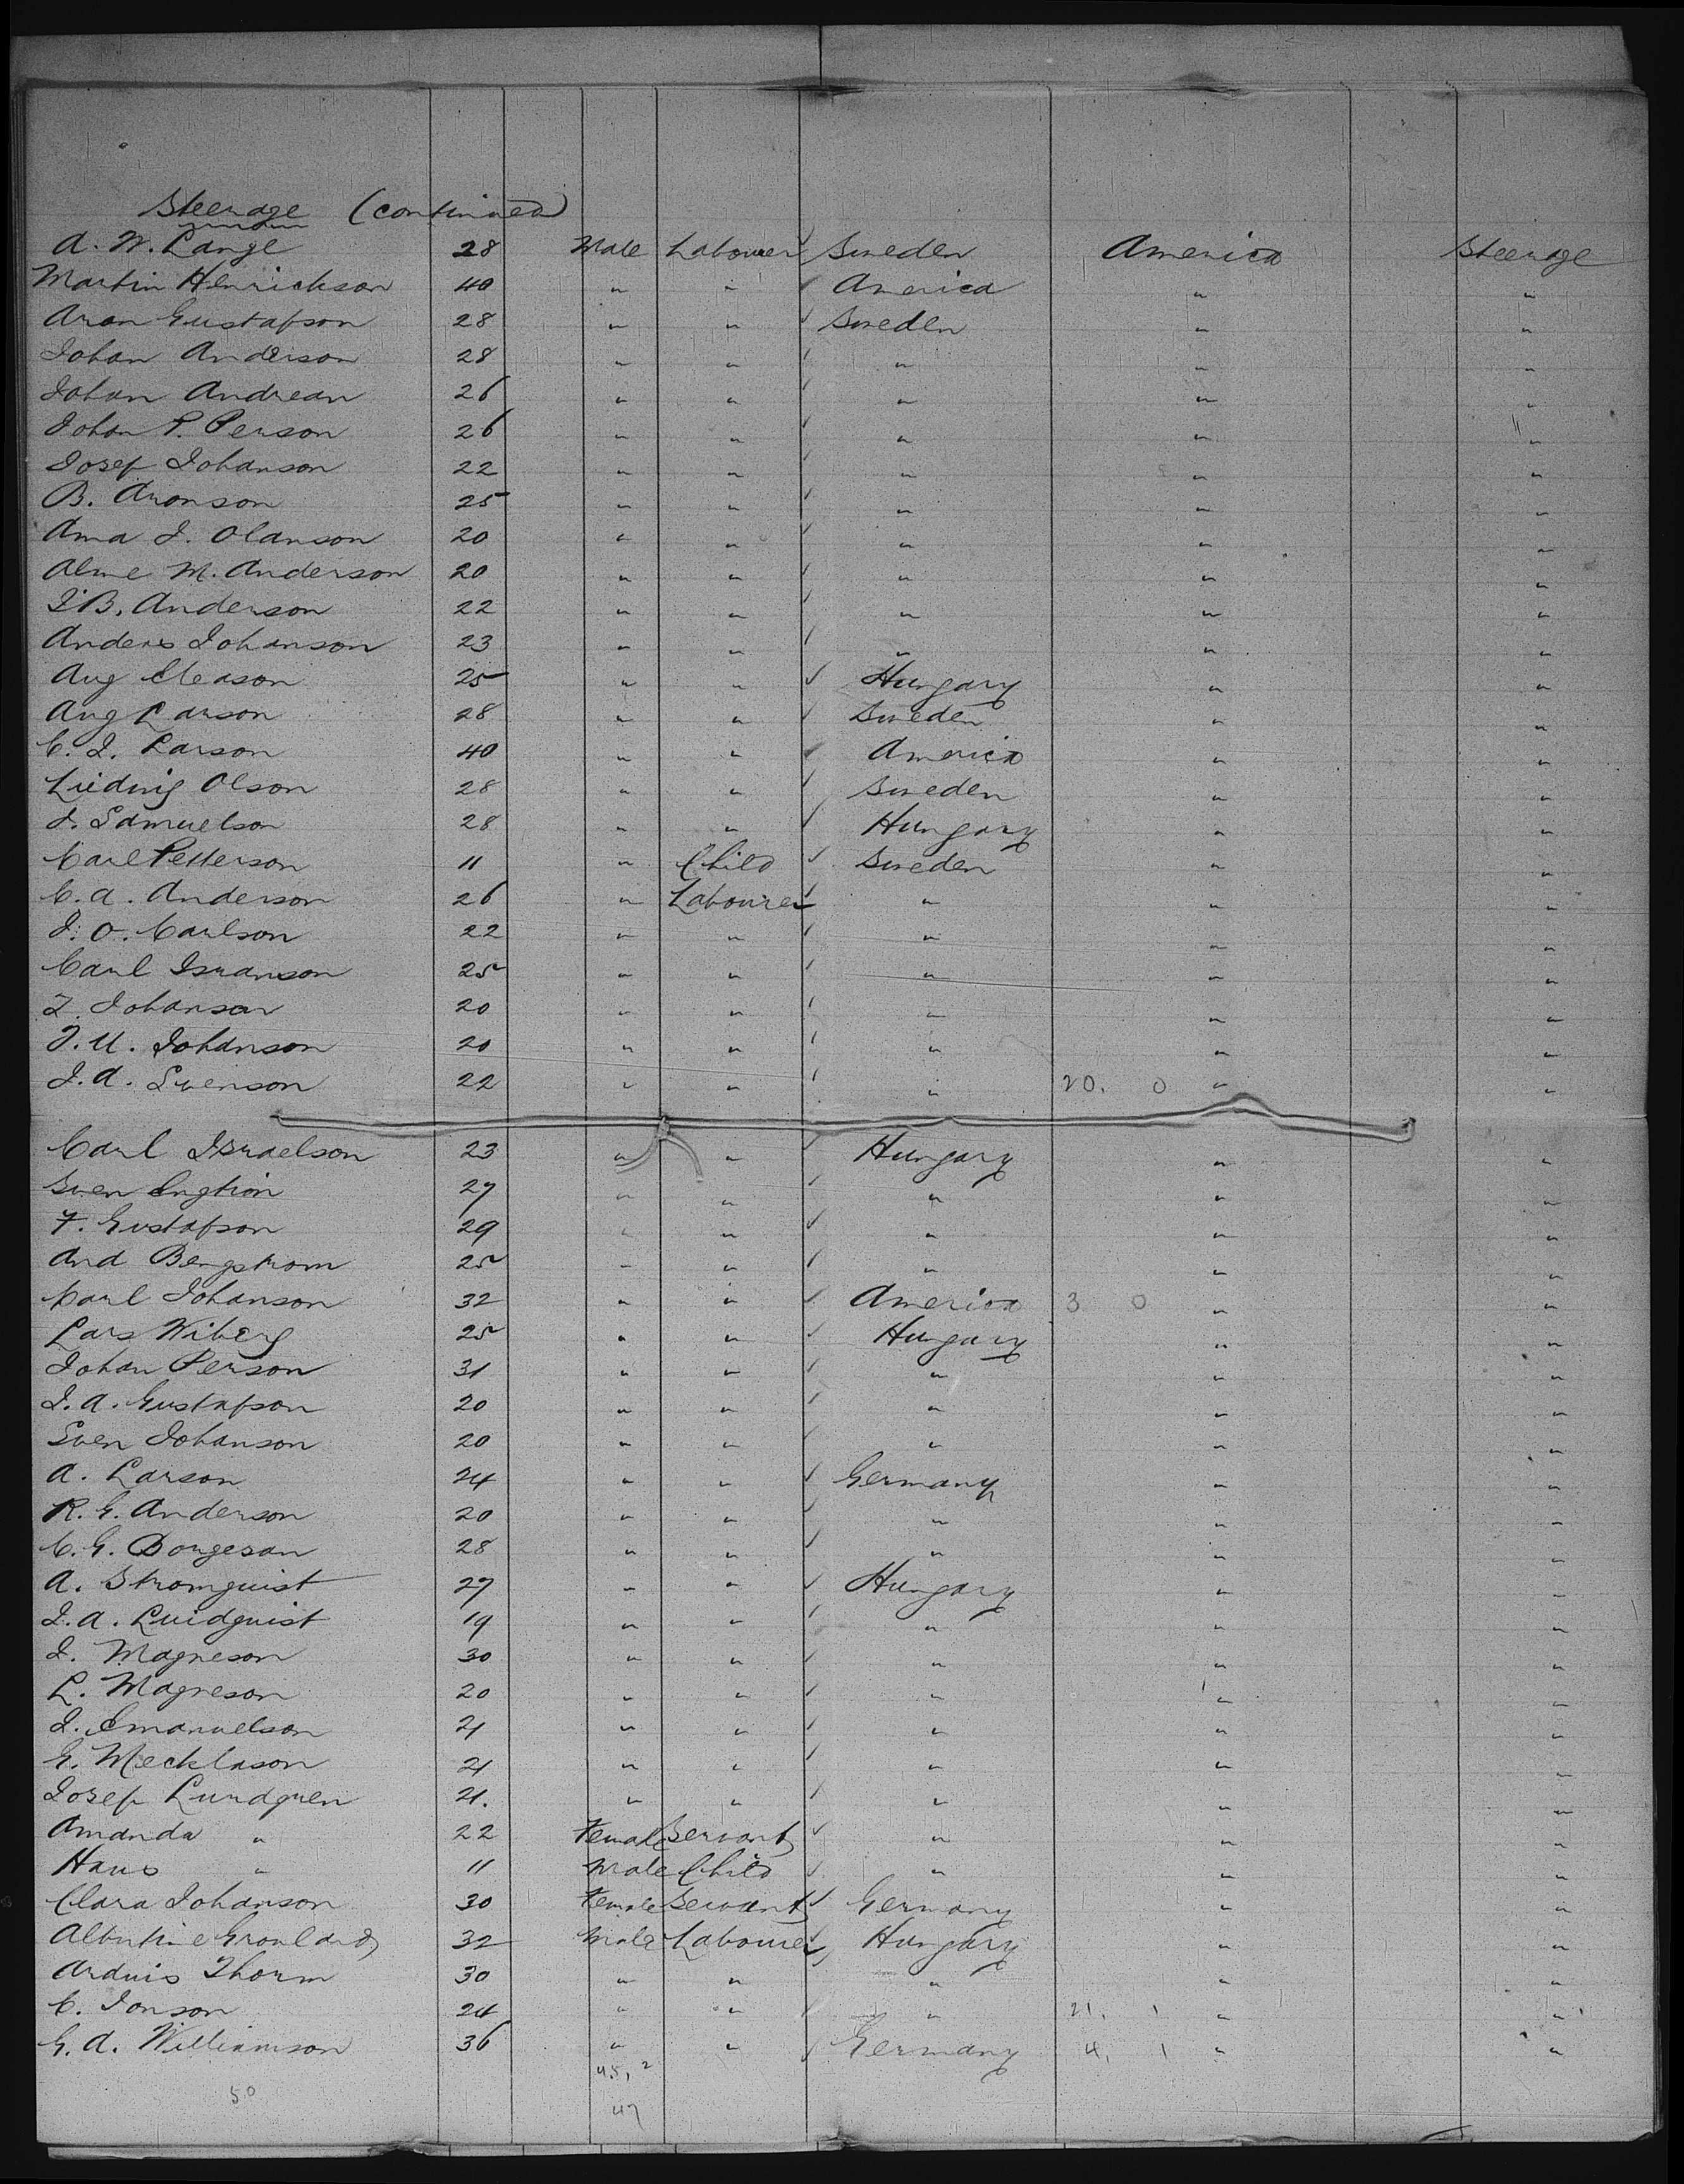 Steerage (continued)
A. W. Lange 28 Male Labourer Sweden America Steerage
Martin Henrickson 40 " " America " "
Aron Gustafson 28 " " Sweden " "
Johan Anderson 28 " " " " "
Johan Andrean 26 " " " " "
Johan P. Person 26 " " " " "
Josef Johanson 22 " " " " "
B. Aronson 25 " " " " "
Ama J. Olanson 20 " " " " "
Alme M. Anderson 20 " " " " "
J B. Anderson 22 " " " " "
Anders Johanson 23 " " " " "
Aug Cleason 25 " " Hungary " "
Aug Larson 28 " " Sweden " "
C. J. Larson 40 " " America " "
Ludwig Olson 28 " " Sweden " "
J. Samuelson 28 " " Hungary " "
Carl Petterson 11 " Child Sweden " "
C. A. Anderson 26 " Labourer " " "
J. O. Carlson 22 " " " " "
Carl Isranson 25 " " " " "
J. Johanson 20 " " " " "
J. U. Johanson 20 " " " " "
J. A. Svenson 22 " " " 20. 0 " "
Carl Israelson 23 " " Hungary " "
Sven 27 " " " " "
F. Gustafson 29 " " " " "
And Bengstrom 25 " " " " "
Carl Johanson 32 " " America 3 0 " "
Lars Wiberg 25 " " Hungary " "
Johan Person 31 " " " " "
J. A. Gustafson 20 " " " " "
Sven Johanson 20 " " " " "
A. Larson 24 " " Germany " "
R. G. Anderson 20 " " " " "
C. G. Borgeson 28 " " " " "
A. Stromquist 27 " " Hungary " "
J. A. Luidquist 19 " " " " "
J. Magneson 30 " " " " "
L. Magneson 20 " " " " "
J. Emanuelson 21 " " " " "
G. Mecklason 21 " " " " "
Josef Lundgren 21. " " " " "
Amanda " 22 Female Servant " " "
Hans " 11 Male Child " " "
Clara Johanson 30 Female Servant Germany " "
32 Male Labourer Hungary " "
Arduis Thorm 30 " " " " "
C. Jonson 24 " " " 21. 1 " "
G. A. Williamson 36 " " Germany 4, 1 " "
45, 2
50
47